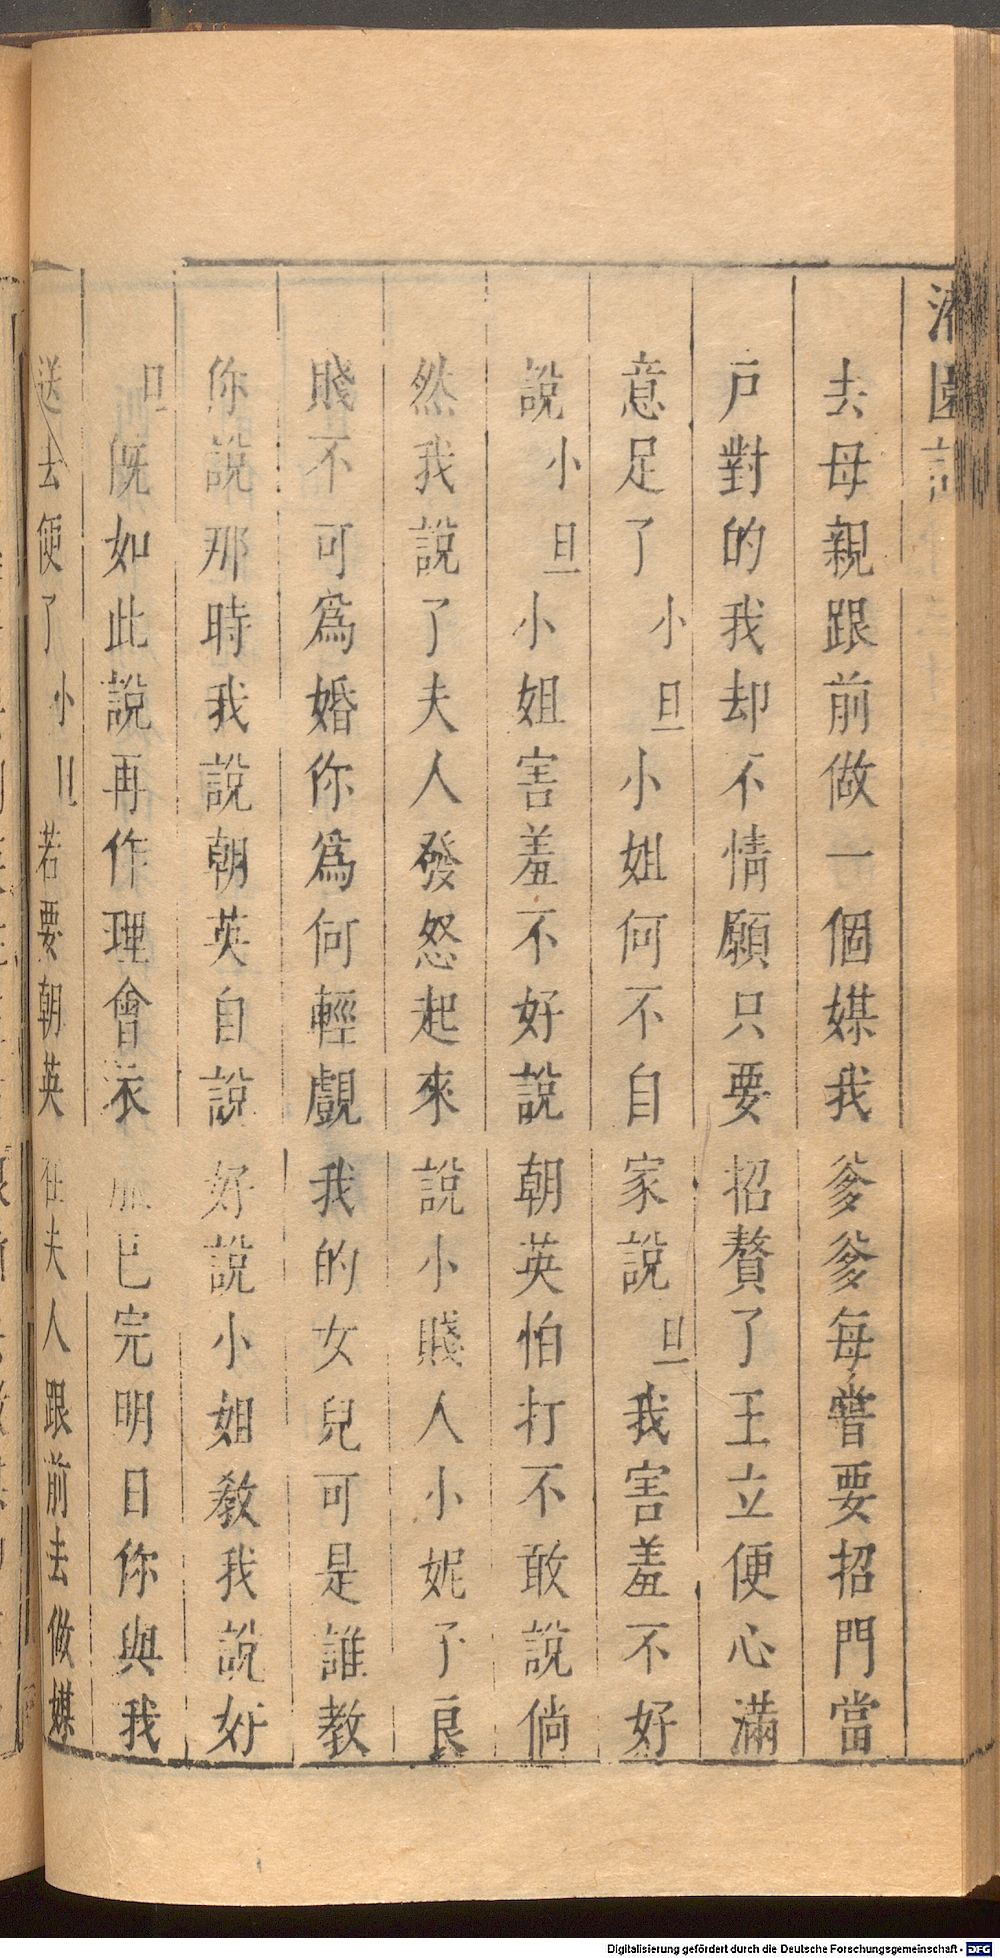 園記
去母親跟前做一個媒我爹爹每嘗要招門當
戶對的我却不情願只要招贅了王立便心滿
意足了小旦小姐何不自家說旦我害羞不好
說小旦小姐害羞不好說朝英怕打不敢說倘
然我說了夫人發怒起來說小賤人小妮子良
賤不可爲婚你爲何輕覷我的女兒可是誰教
你說那時我說朝英自說好說小姐教我說好
旦既如此說再作理會衣服已完明日你與我
送去便了小旦若要朝英在夫人跟前去做媒
Digitalisierung gefördert durch die Deutsche Forschungsgemeinschaft - DFG